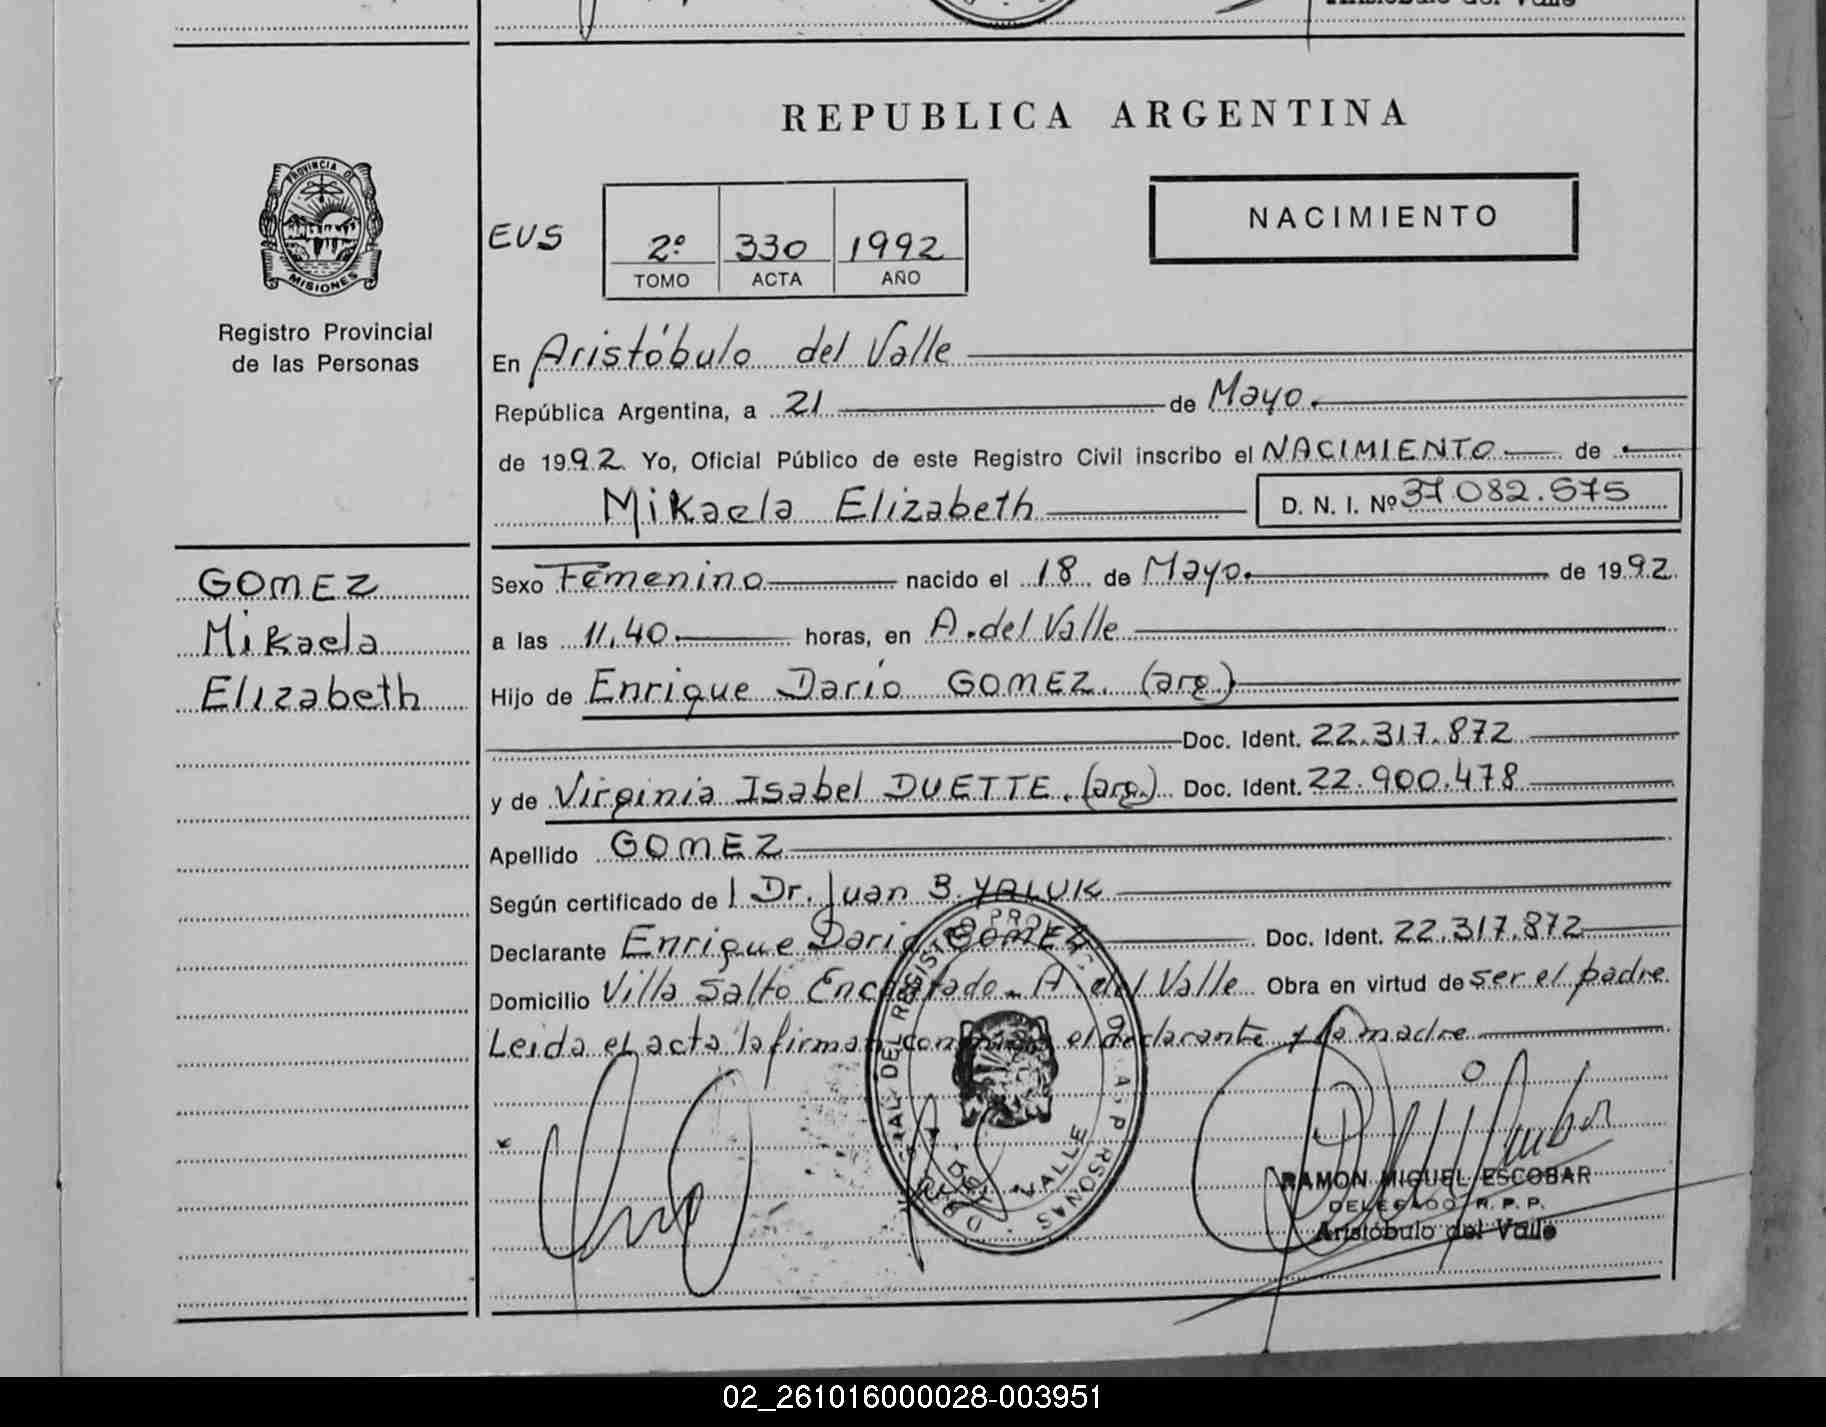 Aristóbulo del Valle
REPUBLICA ARGENTINA
PROVINCIA DE
MISIONES
Registro Provincial
de las Personas
EUS
2º 330 1992
TOMO ACTA AÑO
NACIMIENTO
En Aristóbulo del Valle
República Argentina, a 21 de Mayo.
de 1992. Yo, Oficial Público de este Registro Civil inscribo el NACIMIENTO de
Mikaela Elizabeth D. N. I. Nº 37.082.575
GOMEZ
Mikaela
Elizabeth
Sexo Femenino nacido el 18 de Mayo. de 1992.
a las 11,40. horas, en A. del Valle
Hijo de Enrique Darío GOMEZ. (arg.)
Doc. Ident. 22.317.872
y de Virginia Isabel DUETTE. (arg.) Doc. Ident. 22.900.478
Apellido GOMEZ
Según certificado de l Dr. Juan B. YALUK
Declarante Enrique Dario GOMEZ Doc. Ident. 22.317.872
Domicilio Villa Salto Encantado. A. del Valle Obra en virtud de ser el padre
Leida el acta la firman conmigo el declarante y la madre
DEL REGISTRO
DEL VALLE
RAMON MIGUEL ESCOBAR
DELEGADO R. P. P.
Aristóbulo del Valle
02_261016000028-003951